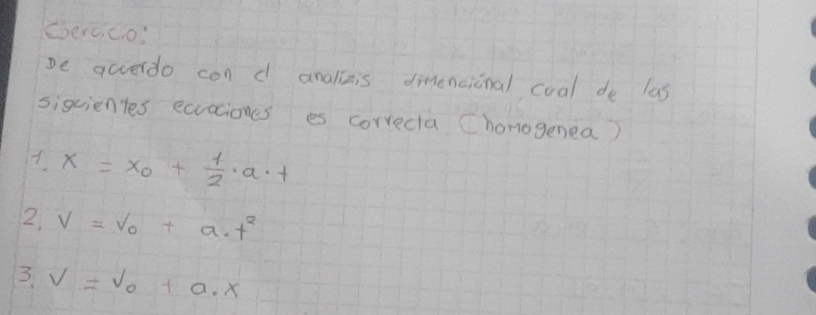 Ejercicio:
De acuerdo con el analisis dimencional cual de las
siguientes ecuaciones es correcta (homogenea)
1. x = x₀ + 1/2 · a · t
2. V = V₀ + a . t²
3. V = V₀ + a . x